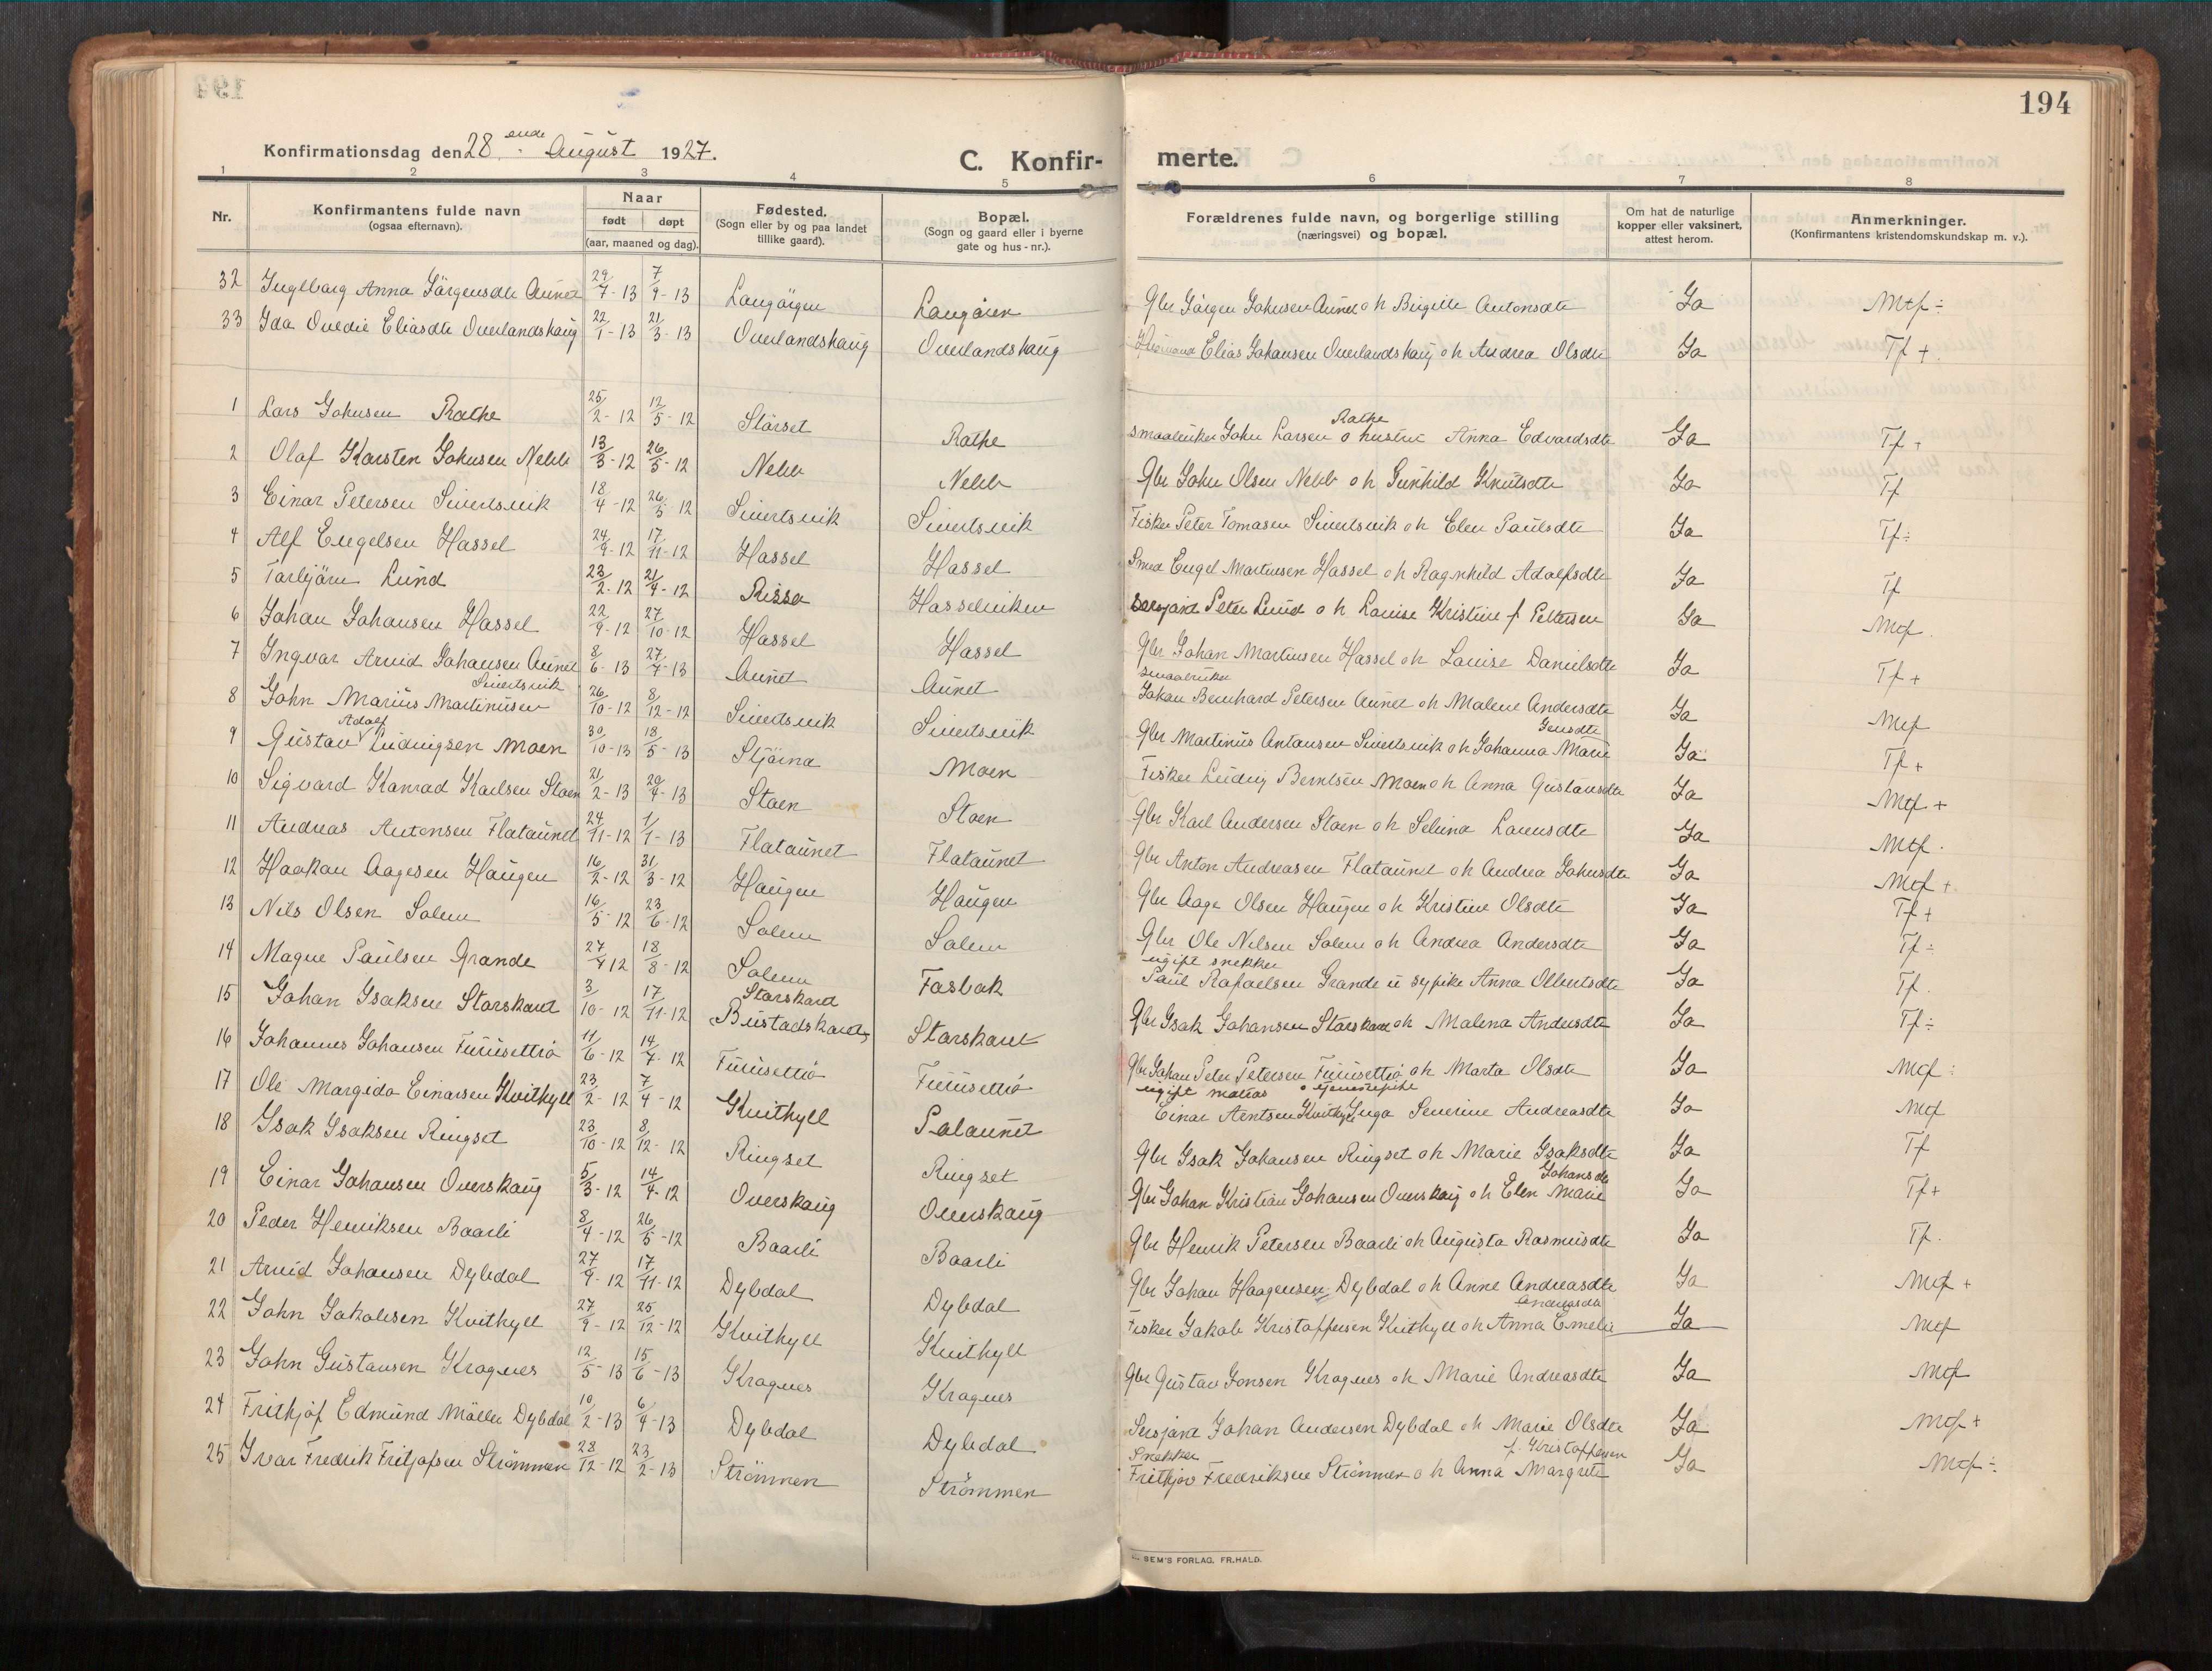 194
Konfirmationsdag den 28. ende August 1927.
C. Konfir- merte.
1 2 3 4 5 6 7 8
Nr.
Konfirmantens fulde navn
(ogsaa efternavn).
Naar
født døpt
(aar, maaned og dag).
Fødested.
(Sogn eller by og paa landet
tillike gaard).
Bopæl.
(Sogn og gaard eller i byerne
gate og hus - nr.).
Forældrenes fulde navn, og borgerlige stilling
(næringsvei) og bopæl.
Om hat de naturlige
kopper eller vaksinert,
attest herom.
Anmerkninger.
(Konfirmantens kristendomskundskap m. v.).
32 Ingebarg Anna Görgensdtr Aunet 29/7-13 7/9-13 Langörgen Langåren Gbr Görgen Johnsen Aunet o h Birgitte Antonsdtr Ja Mtf ÷
33 Ida Ovedie Eliasdtr Overlandshaug 22/1-13 21/3-13 Overlandshaug Overlandshaug Elias Johansen Overlandshaug o h Andrea Olsdtr Ja Tf +.
1 Lars Johnsen Rathe 25/2-12 12/5-12 Störset Rathe smaabruker John Larsen Rathe o hustru Anna Edvardsdtr Ja Tf +
2 Olaf Karsten Johnsen Nebb 13/3-12 26/5-12 Nebb Nebb Gbr John Olsen Nebb o h Gunhild Knutsdtr Ja Tf
3 Einar Petersen Sivertsvik 18/4-12 26/5-12 Sivertsvik Sivertsvik Fisker Peter Tomasen Sivertsvik o h Elen Paulsdtr Ja Tf ÷
4 Alf Engelsen Hassel 24/9-12 17/11-12 Hassel Hassel Smed Engel Martinsen Hassel o h Ragnhild Adolfsdtr Ja Tf
5 Torbjörn Lund 23/2-12 21/4-12 Rissa Hasselviken Sersjant Peter Lund o h Louise Kristine f Pettersen Ja Mtf.
6 Johan Johansen Hassel 22/9-12 27/10-12 Hassel Hassel Gbr Johan Martinsen Hassel o h Louise Danielsdtr Ja Tf +
7 Ingvar Arvid Johansen Aunet 8/6-13 27/7-13 Aunet Aunet smaabruker Johan Bernhard Petersen Aunet o h Malene Andersdtr Ja Mtf
8 John Marius Martinusen Sivertsvik 26/10-12 8/12-12 Sivertsvik Sivertsvik Gbr Martinus Antonsen Sivertsvik o h Johanna Marie Jensdtr Ja Tf +
9 Gustav Adolf Ludvigsen Moen 30/10-13 18/5-13 Stjörna Moen Fisker Ludvig Berntsen Moen o h Anna Gustavsdtr Ja Mtf +
10 Sigvard Konrad Karlsen Stoen 21/2-13 20/4-13 Stoen Stoen Gbr Karl Andersen Stoen o h Selina Larensdtr Ja Mtf.
11 Andreas Antonsen Flataunet 24/11-12 1/1-13 Flataunet Flataunet Gbr Anton Andreasen Flataunet o h Andrea Johnsdtr Ja Mtf +
12 Haakon Aagesen Haugen 16/2-12 31/3-12 Haugen Haugen Gbr Aage Olsen Haugen o h Kristine Olsdtr Ja Tf +
13 Nils Olsen Solem 16/5-12 23/6-12 Solem Solem Gbr Ole Nilsen Solem o h Andrea Andersdtr Ja Tf ÷
14 Magne Paulsen Grande 27/7 12 18/8-12 Solem Fosbak ugift snekker Paul Rafaelsen Grande u sypike Anna Olbertsdtr Ja Tf.
15 Johan Isaksen Starskard 3/10-12 17/11-12 Starskard Bustadskard Starskard Gbr Isak Johansen Starskard o h Malena Andersdtr Ja Tf ÷
16 Johannes Johansen Furusettrö 11/6-12 14/7-12 Furusettrö Furusettrö Gbr Johan Peter Petersen Furusettrö o h Marta Olsdtr Ja Mtf ÷
17 Ole Margido Einarsen Kvithyll 23/2-12 7/4-12 Kvithyll Palaunet ugift matros o tjenestepike Einar Arntsen Kvithyll Inga Severine Andreasdtr Ja Mtf
18 Isak Isaksen Ringset 23/10-12 8/12-12 Ringset Ringset Gbr Isak Johansen Ringset o h Marie Isaksdtr Ja Tf
19 Einar Johansen Overskaug 5/3-12 14/4-12 Overskaug Overskaug Gbr Johan Kristian Johansen Overskaug o h Elen Marie Johansdtr Ja Tf +
20 Peder Henriksen Baarli 8/4-12 26/5-12 Baarli Baarli Gbr Henrik Petersen Baarli o h Augusta Rasmusdtr Ja Tf.
21 Arvid Johansen Dybdal 27/9-12 17/11-12 Dybdal Dybdal Gbr Johan Haagensen Dybdal o h Anne Andreasdtr Ja Mtf +
22 John Jakobsen Kvithyll 27/9-12 25/12-12 Kvithyll Kvithyll Fisker Jakob Kristoffersen Kvithyll o h Anna Emelie Andreasdtr Ja Mtf
23 John Gustavsen Kragnes 12/5-13 15/6-13 Kragnes Kragnes Gbr Gustav Jonsen Kragnes o h Marie Andreasdtr Ja Mtf
24 Frithjof Edmund Möller Dybdal 10/2-13 6/4-13 Dybdal Dybdal Sersjant Johan Andersen Dybdal o h Marie Olsdtr Ja Mtf +
25 Ivar Fredrik Fritjofsen Strömmen 28/12-12 23/2-13 Strömmen Strömmen Snekker Frithjov Fredriksen Strömmen o h Anna Margrete f. Kristoffersen Ja Mtf ÷
SEM'S FORLAG, FR.HALD.